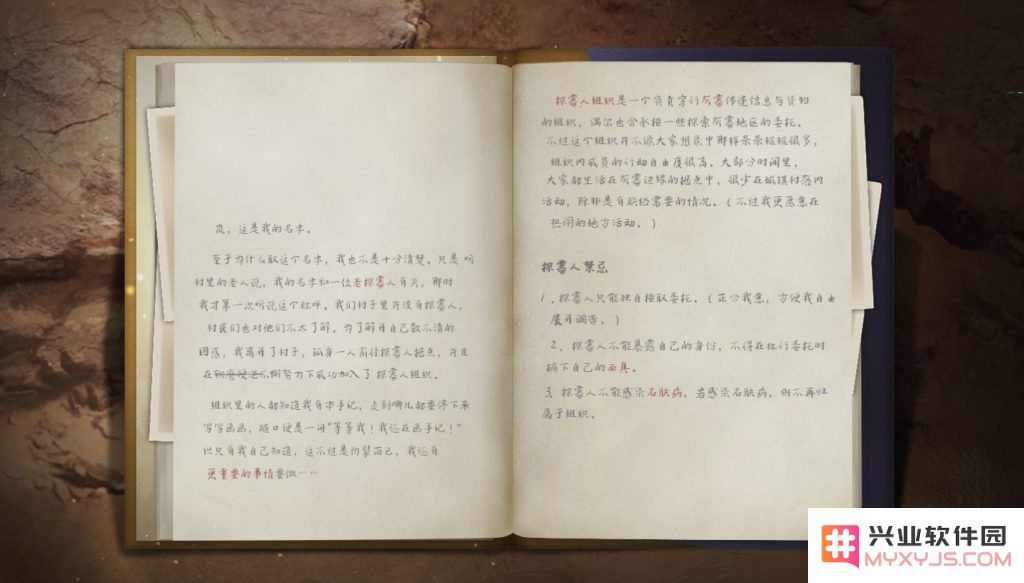 岚，这是我的名字。
至于为什么取这个名字，我也不是十分清楚。只是 听
村里的老人说，我的名字和一位老探雾人有关，那时
我才第一次听说这个称呼。我们村子里并没有探雾人，
村民们也对他们不太了解。为了解开自己数不清的
困惑，我离开了村子，孤身一人前往探雾人据点，并且
在软磨硬泡不懈努力下成功加入了 探雾人组织。
组织里的人都知道我有本手记，走到哪儿都要停下来
写写画画，随口便是一句“等等我！我还在画手记！”
但只有我自己知道，这不过是伪装而已，我还有
更重要的事情要做……
探雾人组织是一个负责穿行灰雾传递信息与货物
的组织，偶尔也会承接一些探索灰雾地区的委托。
不过这个组织并不像大家想象中那样条条框框很多，
组织内成员的行动自由度很高。大部分时间里，
大家都生活在灰雾边缘的据点中，很少在城镇村落内
活动，除非是有必经需要的情况。（不过我更愿意在
热闹的地方活动。）
探雾人禁忌
1．探雾人只能独自接取委托。（正合我意，方便我自由
展开调查。）
2．探雾人不能暴露自己的身份，不得在执行委托时
摘下自己的面具。
3．探雾人不能感染石肤病，若感染石肤病，则不再归
属于组织。
兴业软件园
MYXYJS.COM